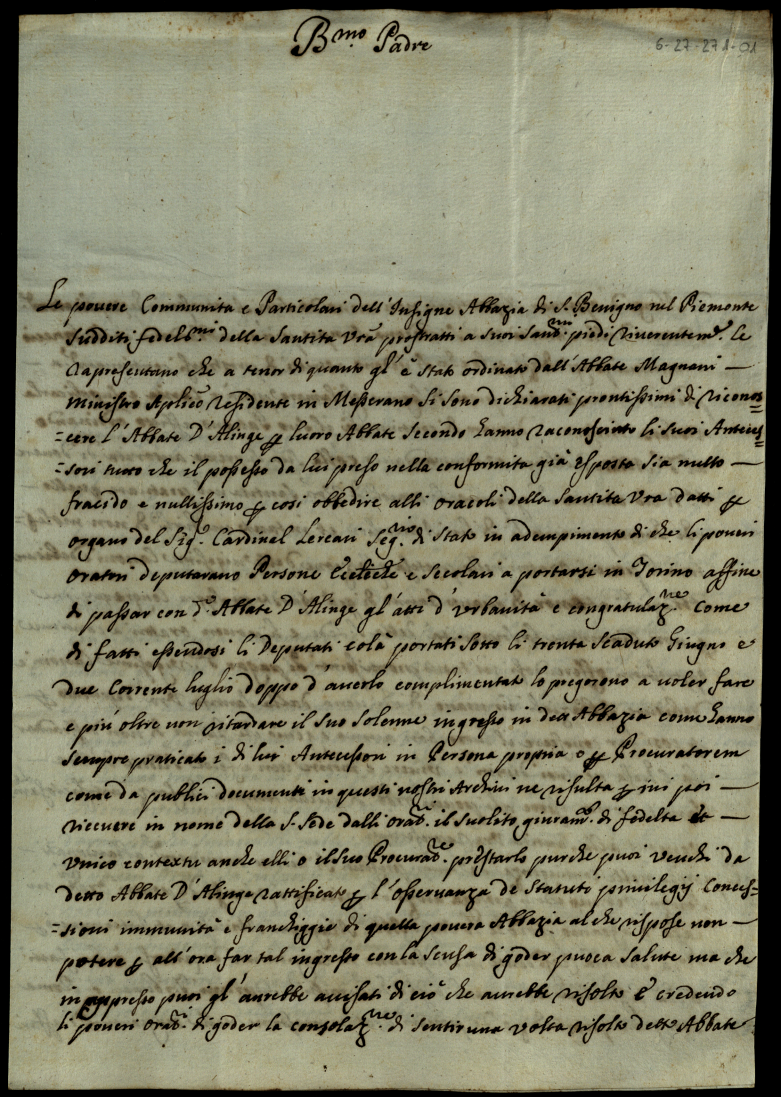 Bmo. Padre
6-27-271-01
Le povere Communita e Particolari dell'Insigne Abbazia di S. Benigno nel Piemonte
Sudditi fedelmi. della Santita Vra prostratti a suoi Sanmi. piedi riverentemte. le
rapresentano che a tenor di quanto gl'è stato ordinato dall'Abbate Magnani —
Ministro Aplico residente in Messerano si sono dichiarati prontissimi di riconos=
=cere l'Abbate D'Alinge p luoro Abbate secondo hanno raconosciuto li suoi Anteces=
=sori tutto che il possesso da lui preso nella conformita già esposta sia nullo —
fracido e nullissimo p cosi obbedire alli oracoli della Santita Vra datti p
organo del Sigr. Cardinel Lercari Segrio. di Stato in adempimento di che li poveri
Oratori deputarano Persone Eccliche e Secolari a portarsi in Torino affine
di passar con do. Abbate D'Alinge gl'atti d'urbanità e congratulazne. Come
di fatti essendosi li Deputati colà portati sotto li trenta scaduto Giugno e
due Corrente luglio doppo d'averlo complimentato lo pregorono a voler fare
e più oltre non ritardare il suo solenne ingresso in detta Abbazia come hanno
sempre praticato i di lui Antecessori in Persona propria o p Procuratorem
come da publici documenti in questi nostri Archivi ne risulta p ivi poi —
riceuere in nome della S. Sede dalli oratri. il suolito giuramto. di fedelta et —
unico contextu anche elli o il suo Procuratre. prestarlo purche puoi venchi da
detto Abbate D'Alinge rattificato p l'osservanza de Statuto privilegij Conces=
=sioni immunità e franchiggie di quella povera Abbazia al che rispose non —
potere p all'ora far tal ingresso con la scusa di goder puoca salute ma che
in appresso puoi gl'aurebbe auisati di ciò che aurebbe risolto E credendo
li poveri Oratri. di goder la consolazne. di sentir una volta risolto detto Abbate